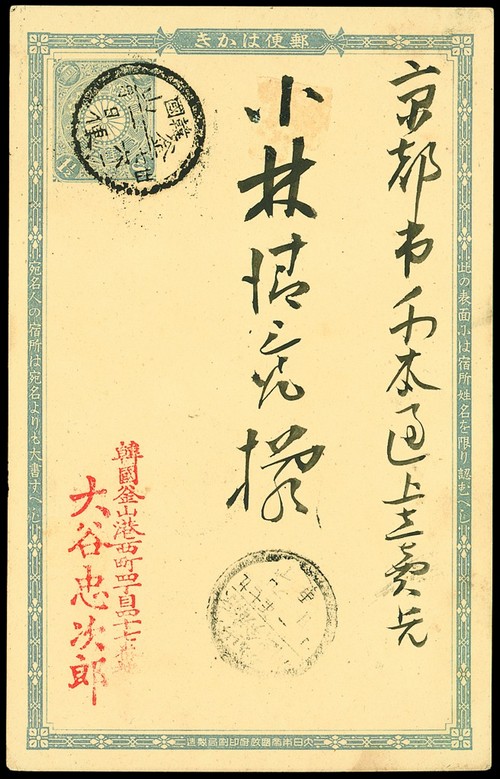 郵便はかき
此の表面には宿所姓名を限り認むへし
京都市千本通上立賣
小林清 様
韓國釜山
韓國釜山港西町四丁目十七番
大谷忠次郎
宛名人の宿所は宛名よりも大書すへし
大日本帝國政府印刷局製造